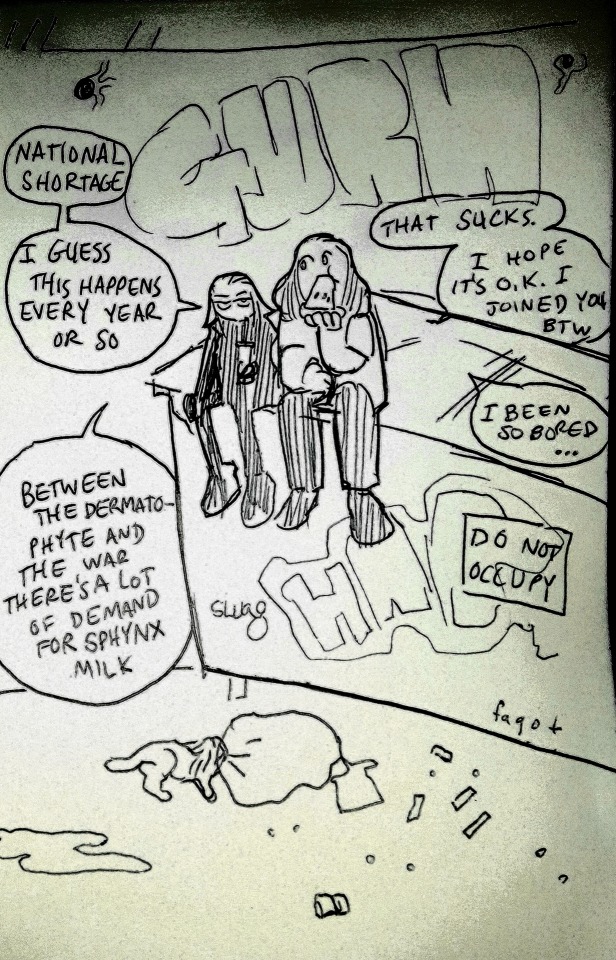 GURH
NATIONAL
SHORTAGE
I GUESS
THIS HAPPENS
EVERY YEAR
OR SO
THAT SUCKS.
I HOPE
IT'S O.K. I
JOINED YOU
BTW
I BEEN
SO BORED
...
BETWEEN
THE DERMATO-
PHYTE AND
THE WAR
THERE'S A LOT
OF DEMAND
FOR SPHYNX
MILK
DO NOT
OCCUPY
swag
fagot